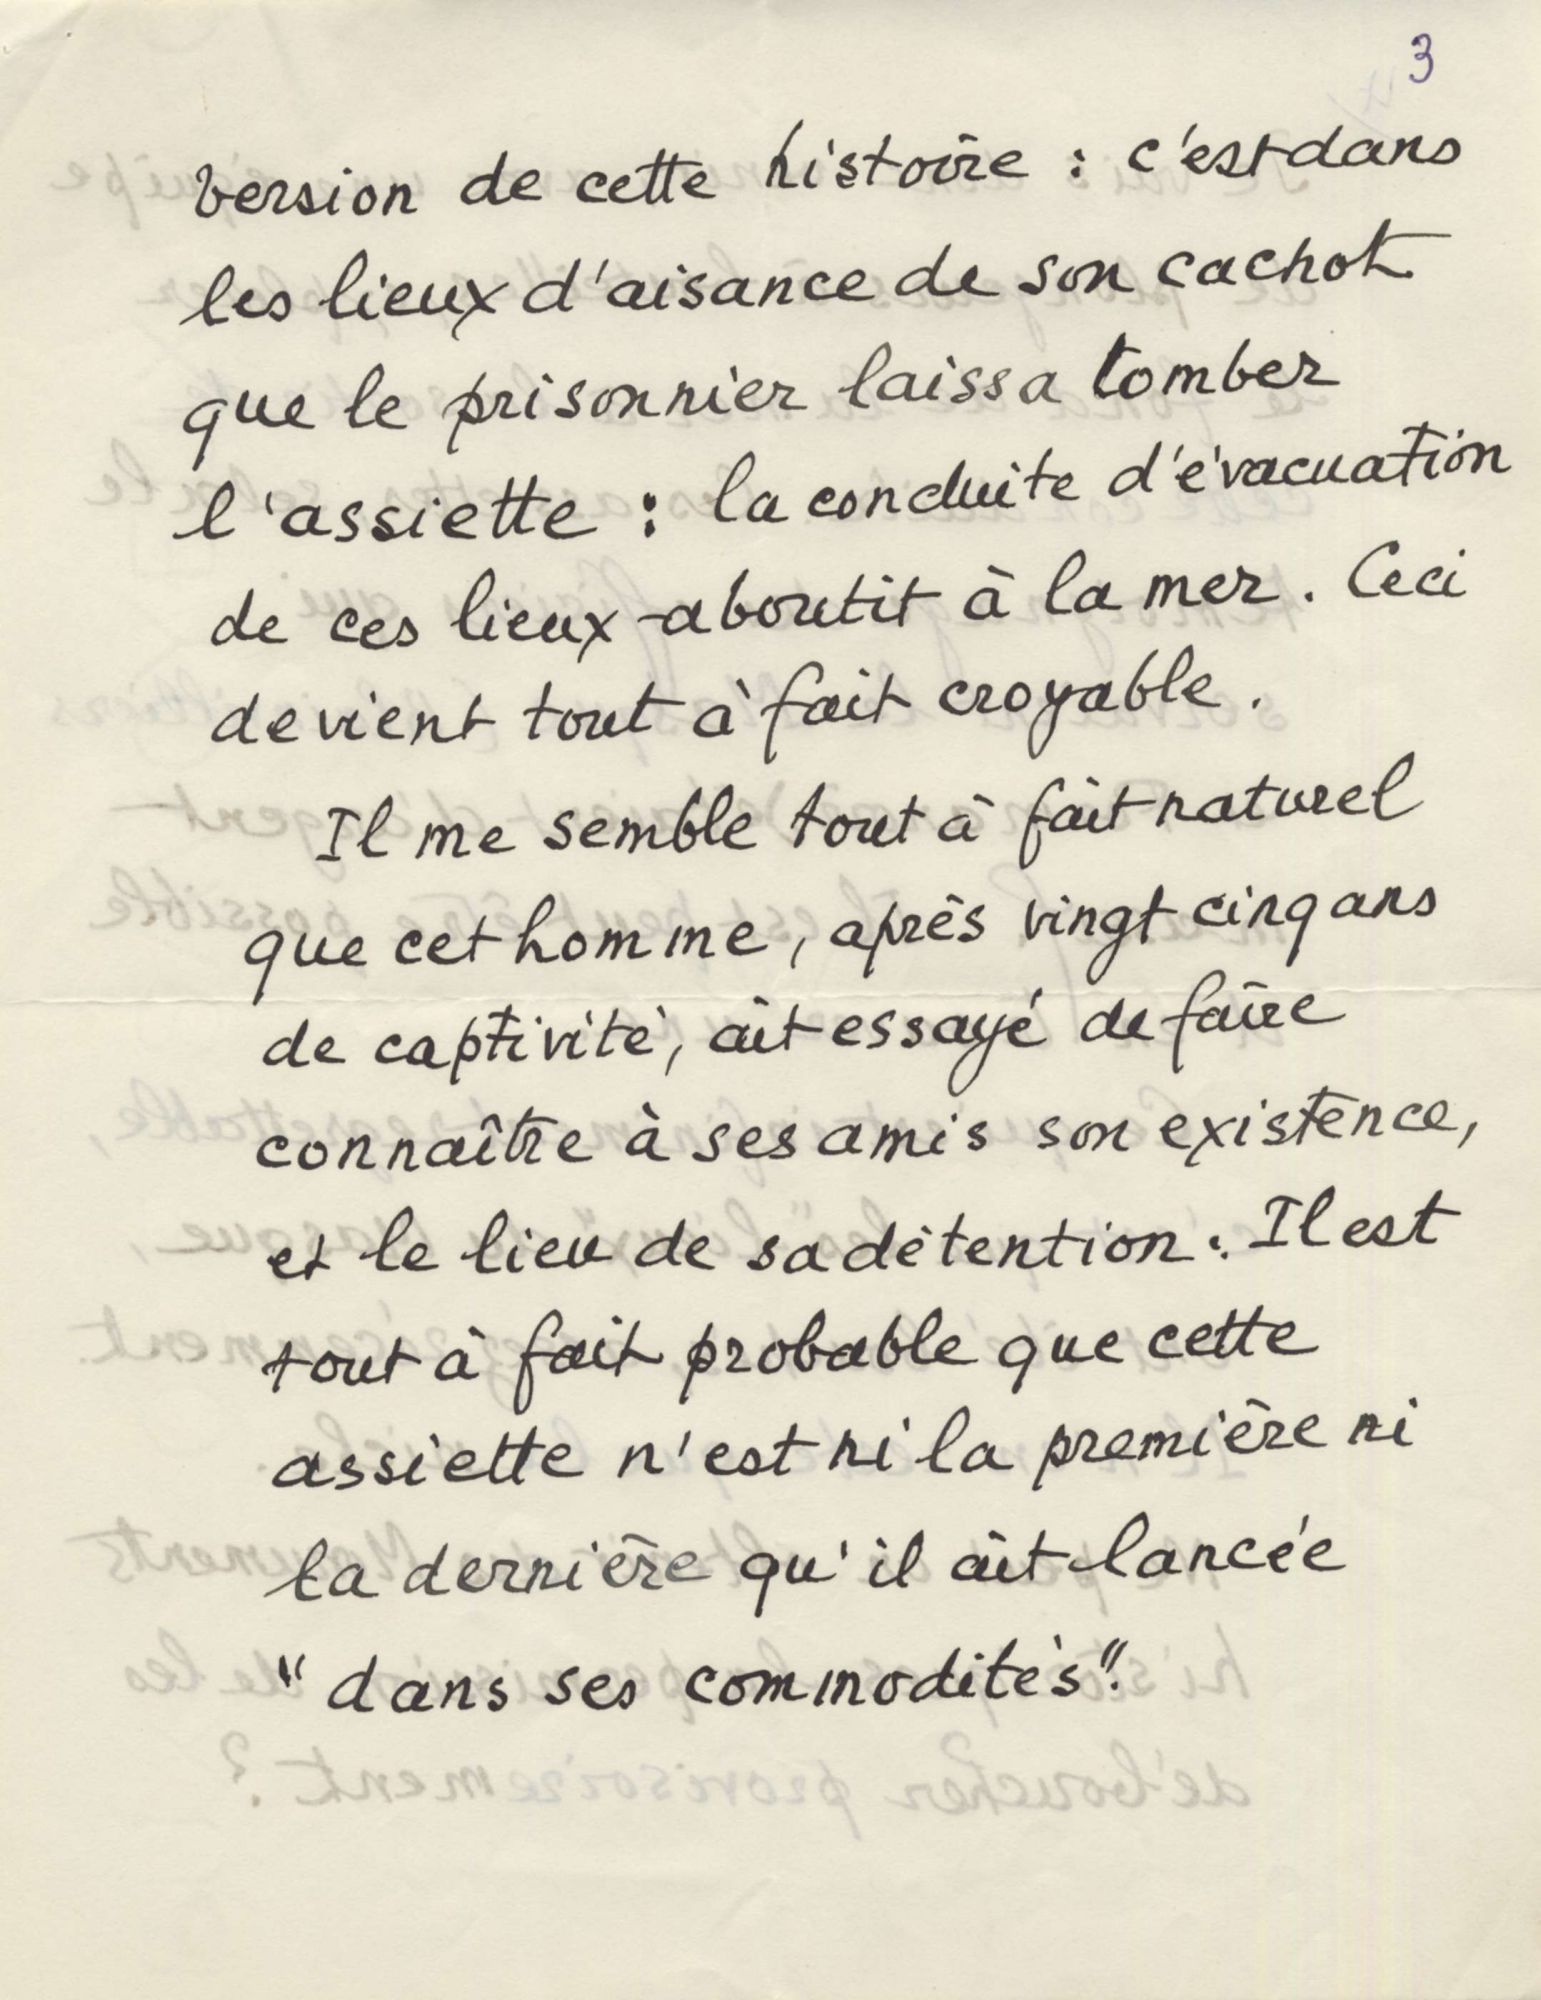 3
version de cette histoire : c'est dans
les lieux d'aisance de son cachot
que le prisonnier laissa tomber
l'assiette : la conduite d'évacuation
de ces lieux aboutit à la mer. Ceci
devient tout à fait croyable.
Il me semble tout à fait naturel
que cet homme, après vingt cinq ans
de captivité, ait essayé de faire
connaître à ses amis son existence,
et le lieu de sa détention. Il est
tout à fait probable que cette
assiette n'est ni la première ni
la dernière qu'il ait lancée
"dans ses commodités".